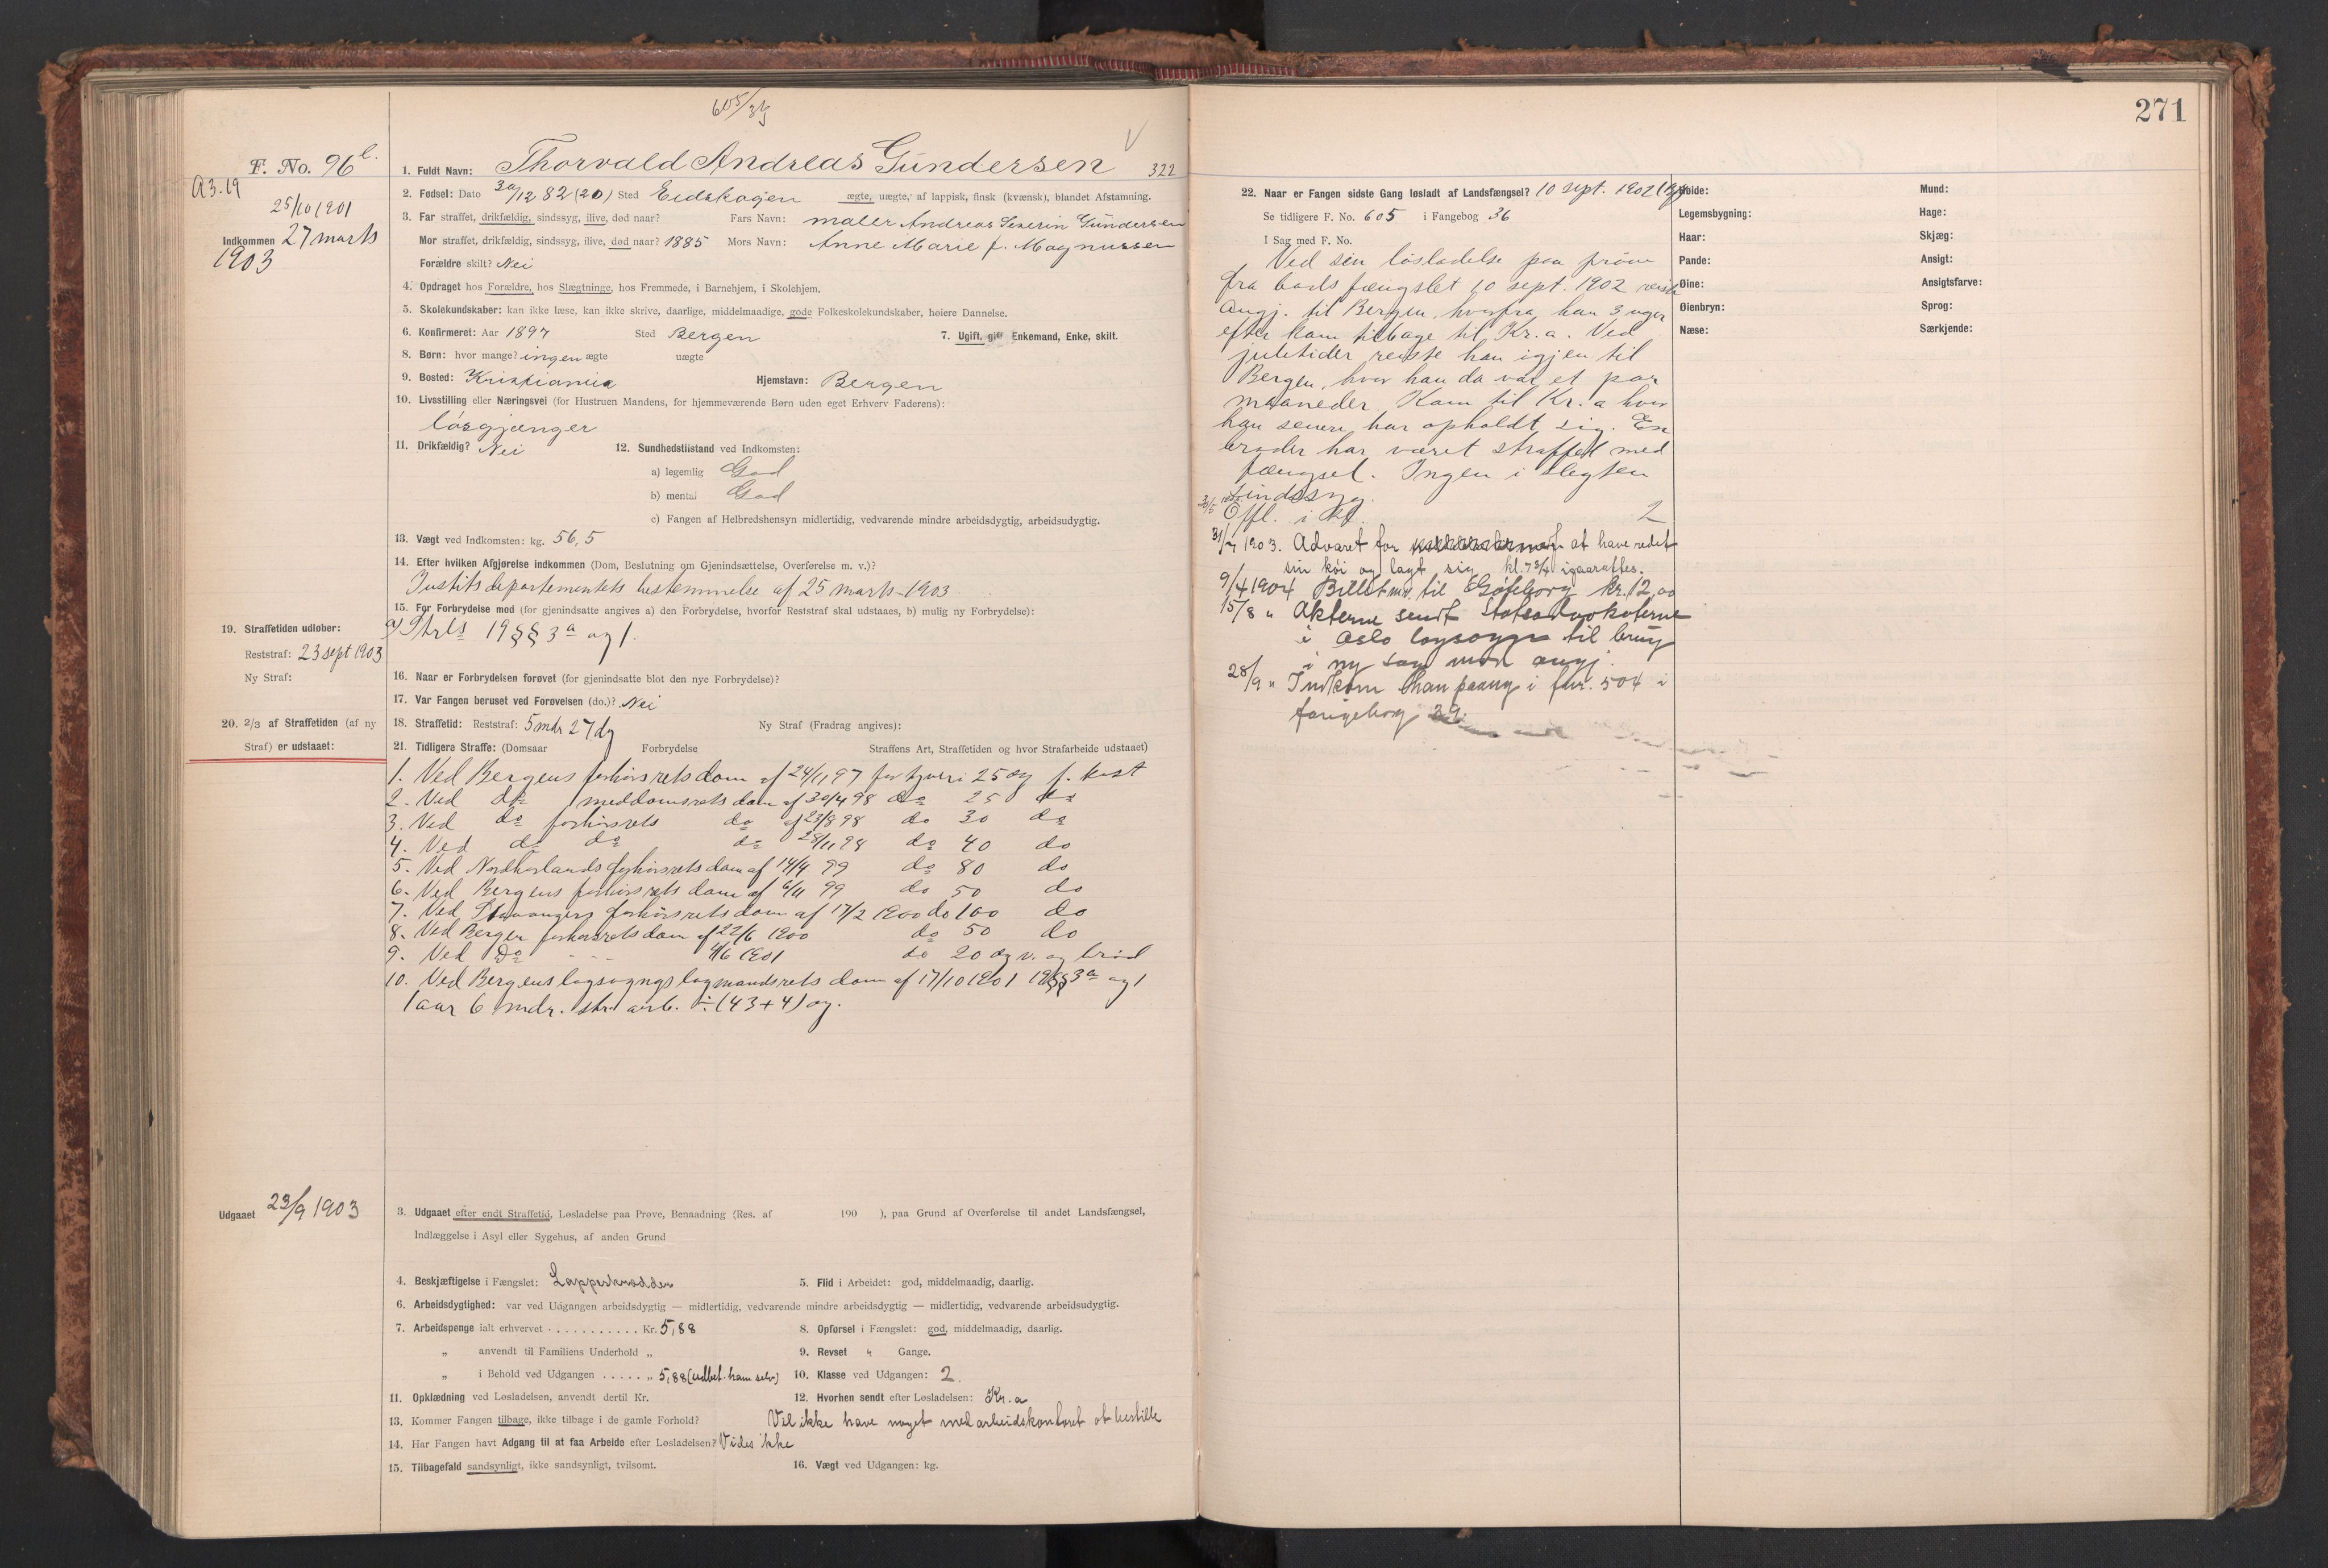 605/36
F. No. 96 b.
A3.19
25/10 1901
Indkommen 27 marts
1903
1. Fuldt Navn: Thorvald Andreas Gundersen 322
2. Fødsel: Dato 30/12 82 (20) Sted Eidskogen ægte, uægte, af lappisk, finsk (kvænsk), blandet Afstamning.
3. Far straffet, drikfældig, sindssyg, ilive, død naar? Fars Navn: maler Andreas Severin Gundersen
Mor straffet, drikfældig, sindssyg, ilive, død naar? 1885 Mors Navn: Anne Marie f. Magnussen
Forældre skilt? Nei
4. Opdraget hos Forældre, hos Slægtninge, hos Fremmede, i Barnehjem, i Skolehjem.
5. Skolekundskaber: kan ikke læse, kan ikke skrive, daarlige, middelmaadige, gode Folkeskolekundskaber, høiere Dannelse.
6. Konfirmeret: Aar 1897 Sted Bergen 7. Ugift, gift Enkemand, Enke, skilt.
8. Børn: hvor mange? ingen ægte uægte
9. Bosted: Kristiania Hjemstavn: Bergen
10. Livsstilling eller Næringsvei (for Hustruen Mandens, for hjemmeværende Børn uden eget Erhverv Faderens):
løsgjænger
11. Drikfældig? Nei 12. Sundhedstilstand ved Indkomsten:
a) legemlig God
b) mental God
c) Fangen af Helbredshensyn midlertidig, vedvarende mindre arbeidsdygtig, arbeidsudygtig.
13. Vægt ved Indkomsten: kg. 56,5
14. Efter hvilken Afgjørelse indkommen (Dom, Beslutning om Gjenindsættelse, Overførelse m. v.)?
Justitsdepartementets bestemmelse af 25 marts 1903
15. For Forbrydelse mod (for gjenindsatte angives a) den Forbrydelse, hvorfor Reststraf skal udstaaes, b) mulig ny Forbrydelse):
a) Strls 19 §§ 3a og 1.
19. Straffetiden udløber:
Reststraf: 23 sept 1903
Ny Straf:
16. Naar er Forbrydelsen forøvet (for gjenindsatte blot den nye Forbrydelse)?
17. Var Fangen beruset ved Forøvelsen (do.)? Nei
20. 2/3 af Straffetiden (af ny
Straf) er udstaaet:
18. Straffetid: Reststraf: 5 mdr 27 dg Ny Straf (Fradrag angives):
21. Tidligere Straffe: (Domsaar Forbrydelse Straffens Art, Straffetiden og hvor Strafarbeide udstaaet)
1. Ved Bergens forhørsrets dom af 24/11 97 for tyveri 25 dg f. kost
2. Ved do meddomsrets dom af 30/4 98 do 25 do
3. Ved do forhørsrets do af 23/8 98 do 30 do
4. Ved do do do 28/11 98 do 40 do
5. Ved Nordhorlands forhørsrets dom af 14/4 99 do 80 do
6. Ved Bergens forhørsrets dom af 6/11 99 do 50 do
7. Ved Stavangers forhørsrets dom af 17/2 1900 do 100 do
8. Ved Bergen forhørsrets dom af 22/6 1900 do 50 do
9. Ved Do - - - 4/6 1901 do 20 dg v. og brød
10. Ved Bergens lagsogns lagmandsrets dom af 17/10 1901 19 §§ 3a og 1
1 aar 6 mdr. str. arb. ÷ (43 + 4) dg.
Udgaaet 23/9 1903
3. Udgaaet efter endt Straffetid, Løsladelse paa Prøve, Benaadning (Res. af 190 ), paa Grund af Overførelse til andet Landsfængsel,
Indlæggelse i Asyl eller Sygehus, af anden Grund
4. Beskjæftigelse i Fængslet: Lappeskrædder 5. Flid i Arbeidet: god, middelmaadig, daarlig.
6. Arbeidsdygtighed: var ved Udgangen arbeidsdygtig — midlertidig, vedvarende mindre arbeidsdygtig — midlertidig, vedvarende arbeidsudygtig.
7. Arbeidspenge ialt erhvervet . . . . . . . . . . . Kr. 5,88 8. Opførsel i Fængslet: god, middelmaadig, daarlig.
„ anvendt til Familiens Underhold „ 9. Revset " Gange.
„ i Behold ved Udgangen . . . . . „ 5,88 (udbet. ham selv) 10. Klasse ved Udgangen: 2
11. Opklædning ved Løsladelsen, anvendt dertil Kr. 12. Hvorhen sendt efter Løsladelsen: Kr.a
13. Kommer Fangen tilbage, ikke tilbage i de gamle Forhold? Vil ikke have noget med arbeidskontoret at bestille
14. Har Fangen havt Adgang til at faa Arbeide efter Løsladelsen? Vides ikke
15. Tilbagefald sandsynligt, ikke sandsynligt, tvilsomt. 16. Vægt ved Udgangen: kg.
271
22. Naar er Fangen sidste Gang løsladt af Landsfængsel? 10 sept. 1902
Se tidligere F. No. 605 i Fangebog 36
I Sag med F. No.
Ved sin løsladelse paa prøve
fra bods fængslet 10 sept. 1902 reiste
Angj. til Bergen, hvorfra han 3 uger
efter kom tilbage til Kr.a. Ved
juletider reiste han igjen til
Bergen, hvor han da var et par
maaneder. Kom til Kr.a hvor
han senere har opholdt sig. En
broder har været straffet med
fængsel. Ingen i slegten
sindssyg.
Effl. i 2
31/7 1903. Advaret for at have redet
sin køi og lagt sig kl. 7 3/4 igaaraftes.
9/4 1904 Billet til Gøteborg kr. 12,00
15/8 " Akterne sendt Statsadvokaterne
i Oslo lagsogn til brug
i ny sag mod angj.
28/9 " Indkom han paany i fnr. 504 i
fangebog 39.
Høide:
Legemsbygning:
Haar:
Pande:
Øine:
Øienbryn:
Næse:
Mund:
Hage:
Skjæg:
Ansigt:
Ansigtsfarve:
Sprog:
Særkjende: